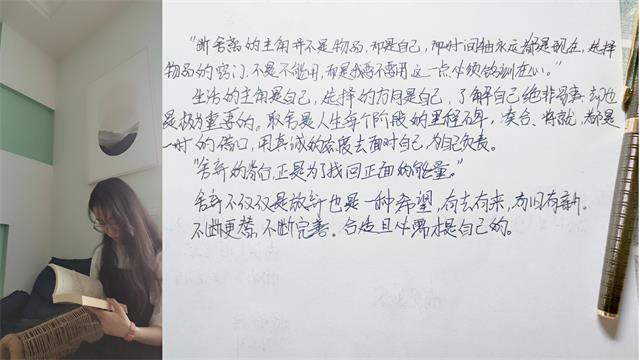 “断舍离的主角并不是物品，而是自己，而时间轴永远都是现在，选择
物品的窍门，不是不能用，而是我要不要用这一点必须铭训在心。”
生活的主角是自己，选择的方向是自己，了解自己绝非易事，却也
是极为重要的。取舍是人生每个阶段的里程碑，凑合、将就，都是
一时的借口，用真诚的态度去面对自己，为自己负责。
“舍弃的背后，正是为了找回正面的能量。”
舍弃不仅仅是放弃也是一种希望，有去有来，有旧有新。
不断更替，不断完善。合适且必需才是自己的。